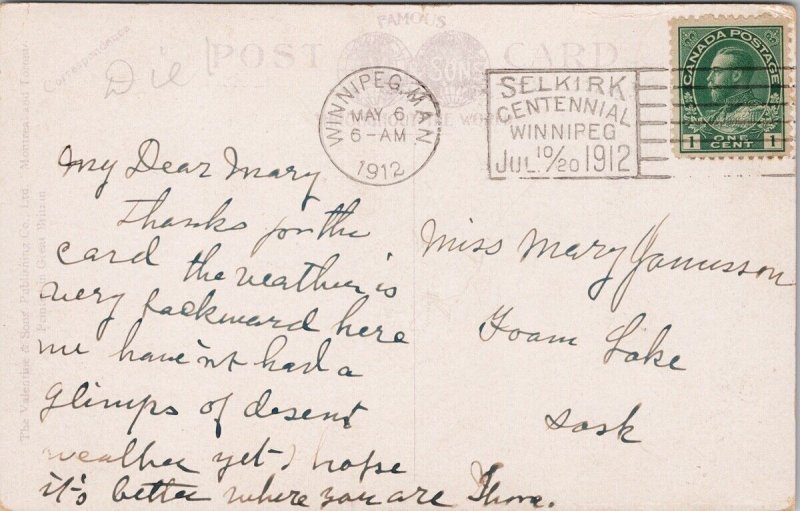 FAMOUS
POST CARD
Correspondence
SONS
WINNIPEG, MAN
MAY 6
6-AM
1912
SELKIRK
CENTENNIAL
WINNIPEG
JUL. 10/20 1912
CANADA POSTAGE
1 ONE CENT 1
The Valentine & Sons' Publishing Co., Ltd., Montreal and Toronto
Printed in Great Britain
My Dear Mary
Thanks for the
card the weather is
very backward here
we have'nt had a
glimps of desent
weather yet I hope
it's better where you are Thora.
Miss Mary
Foam Lake
Sask